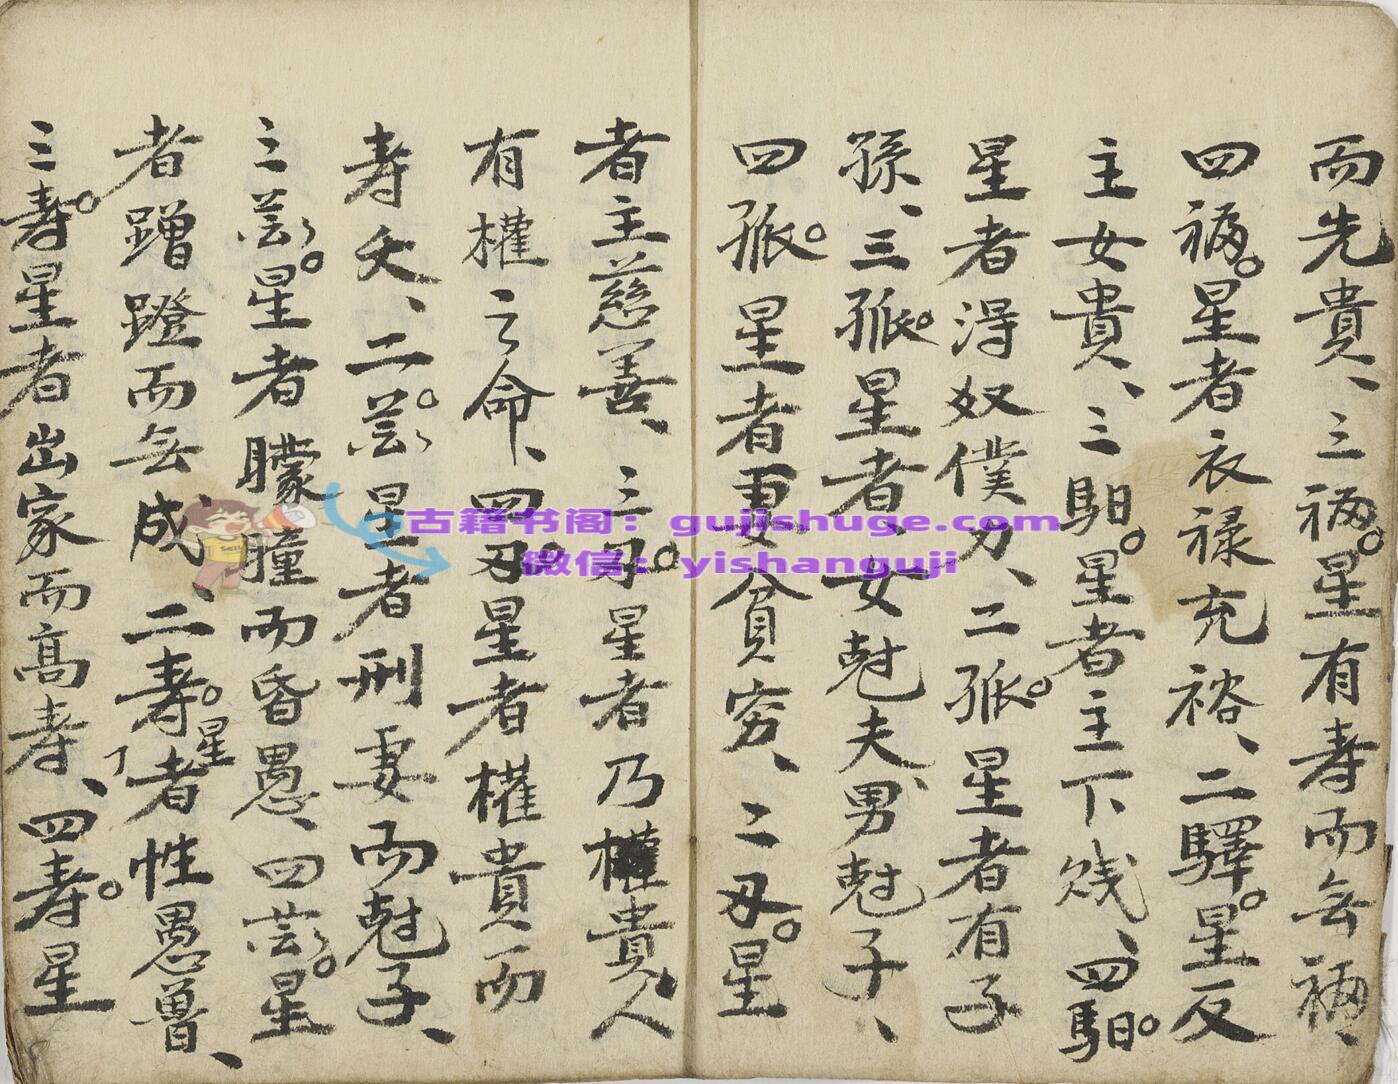 而先貴、三福。星有壽而无福、
四福。星者衣禄充裕、二驛。星反
主女貴、三馹。星者主下賎、四馹。
星者得奴僕力、二孤。星者有子
孫、三孤。星者、女尅夫、男尅子、
四孤。星者妻貧穷、二刃。星
者主慈善、三刃。星者乃權貴人
有權之命、四刃星者權貴而
寿夭、二芸。星者刑妻而尅子、
三芸。星者朦朣而昏愚、四芸。星
者蹭蹬而无成、二寿。星者性愚魯、
三寿。星者出家而高寿、四寿。星
古籍书阁：gujishuge.com
微信：yishanguji